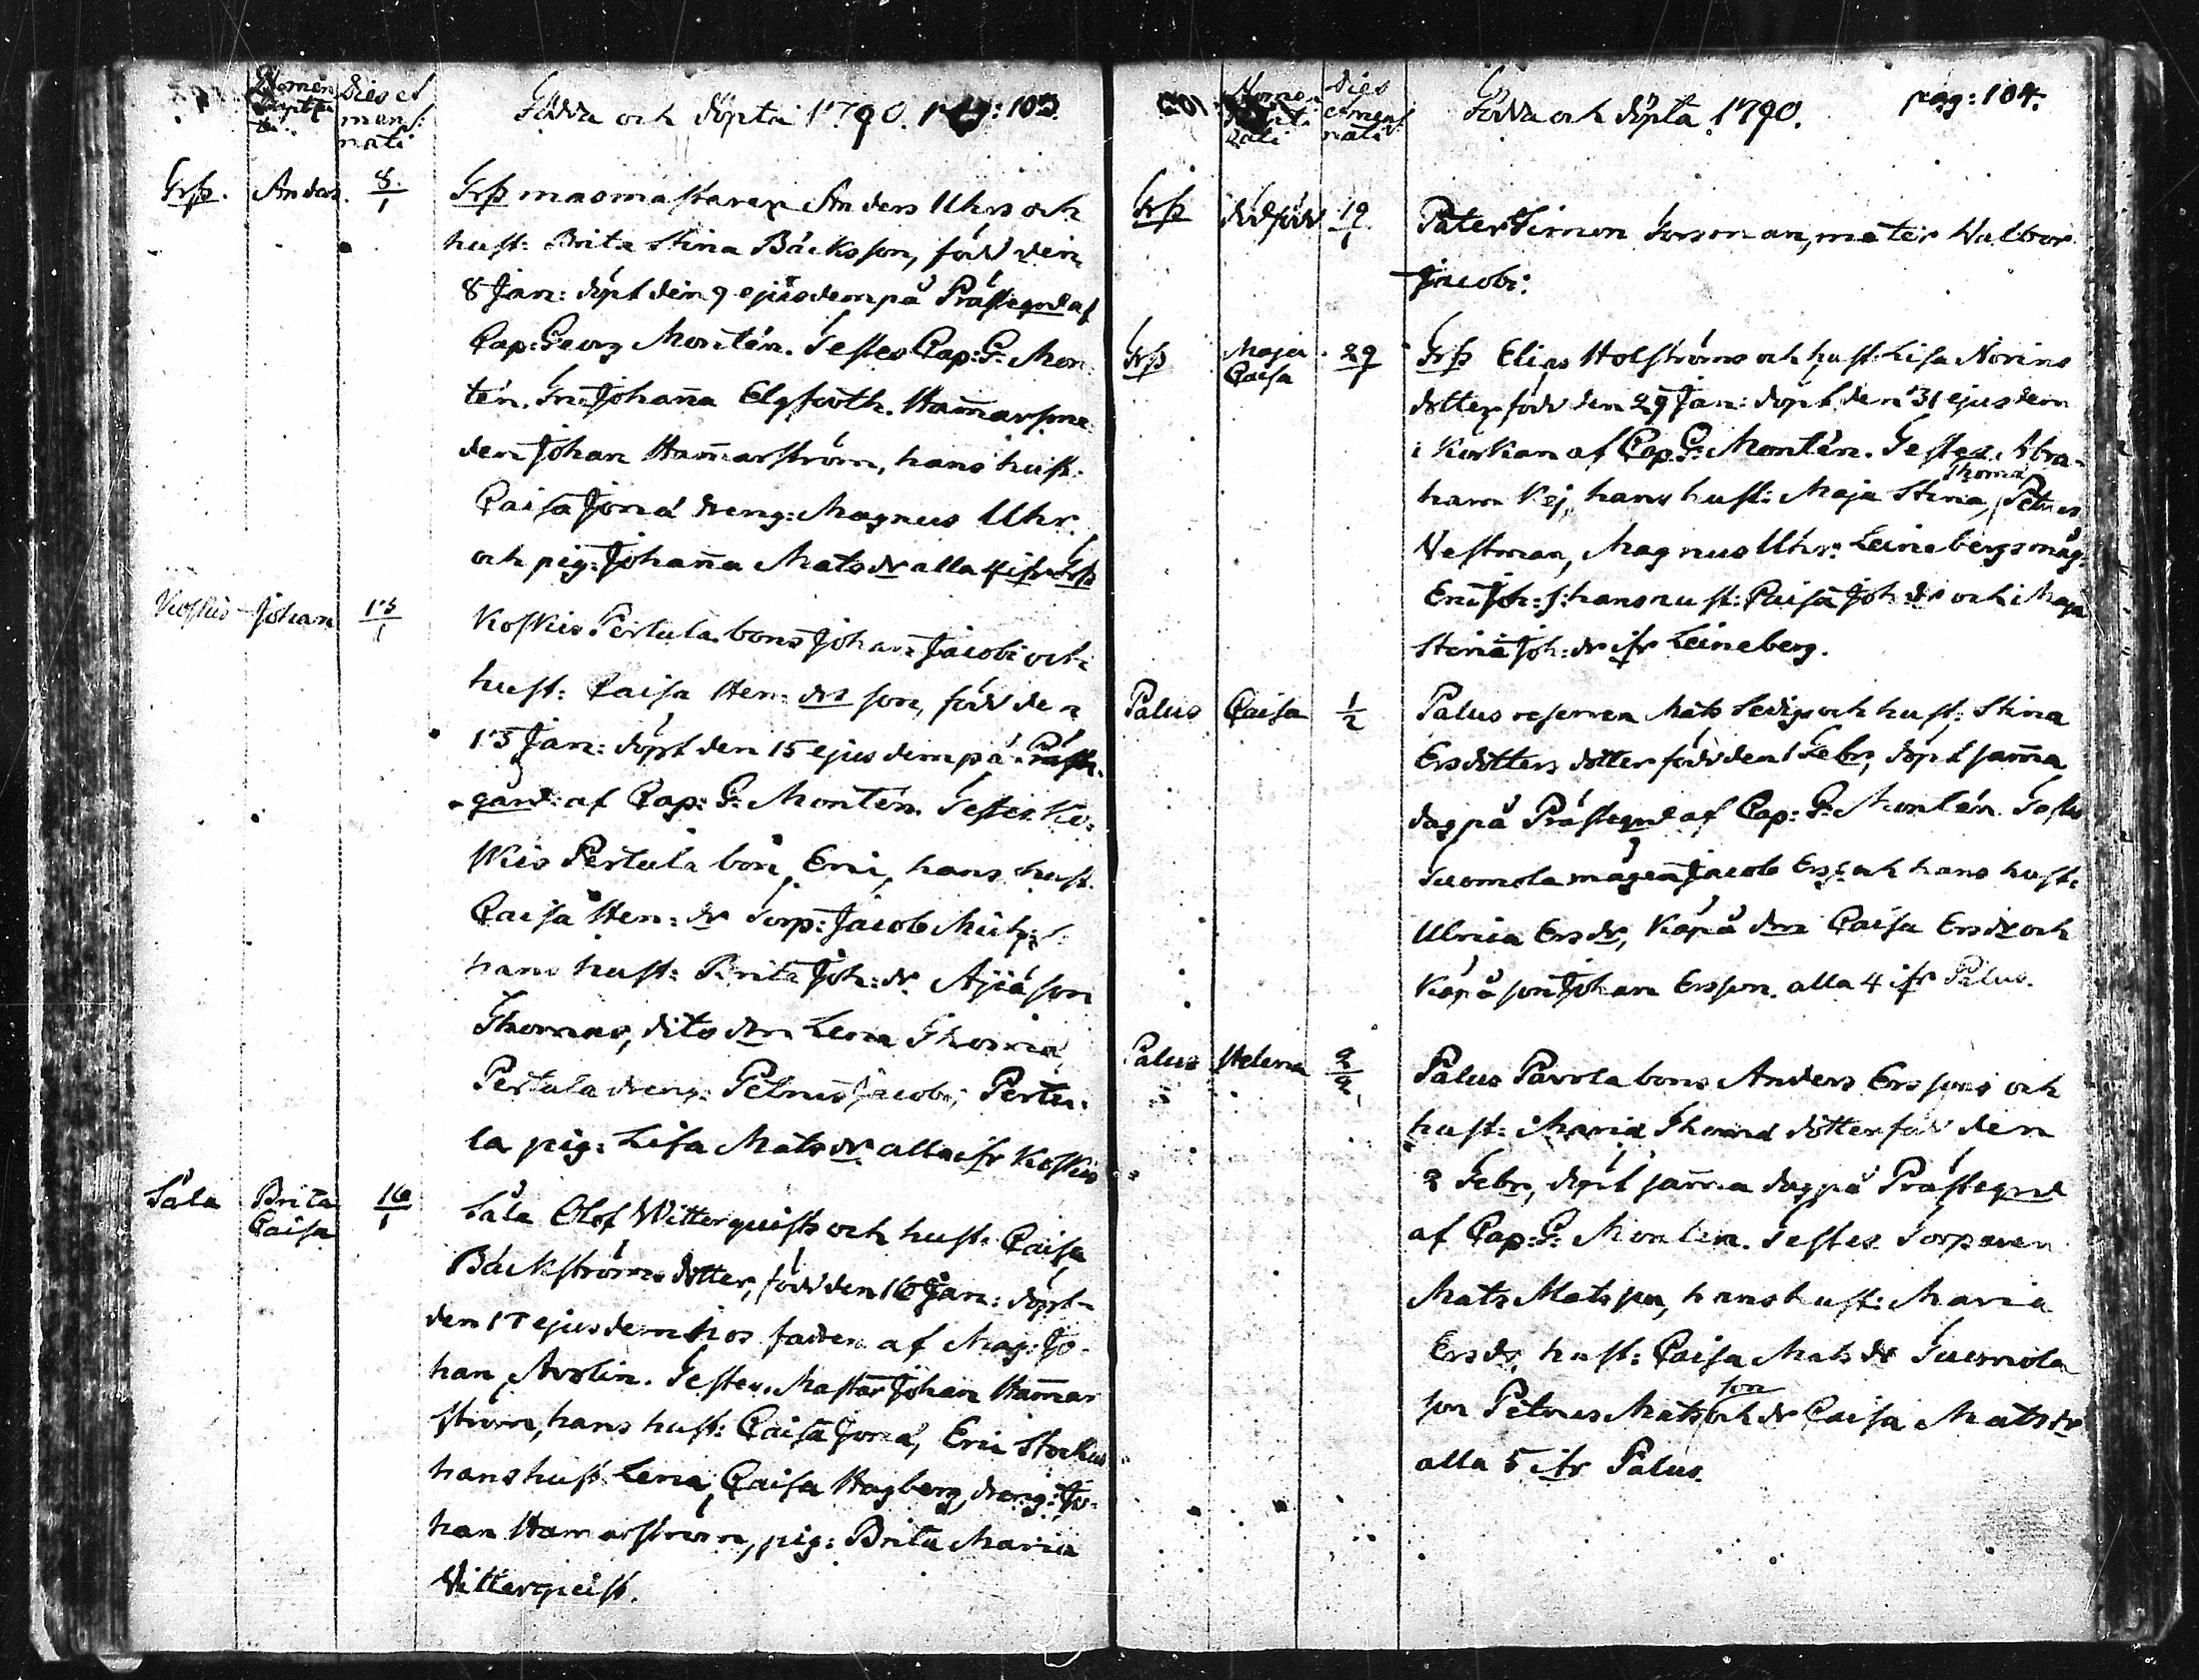 Nomen
Dies et
mens:
nati
Födda och döpta 1790. pag: 103.
Grß. Anders. 8/1 Grß masmästaren Anders Uhrs och
hust: Brita Stina Bäcks son, född den
8 Jan: döpt den 9 ejusdem på Prästegrd af
Cap: Georg Montén. Testes Cap: G: Mon-
tén. Johanna Elgfooth. Hammarsme-
den Johan Hammarström, hans hust:
Caisa Jona dreng: Magnus Uhr
och pig: Johanna Mats dr alla 4 ifr Grß
Koskis Johan 13/1 Koskis Pertula bons Johan Jacobi och
hust: Caisa Hen: drs son, född den
13 Jan: döpt den 15 ejusdem på Präste-
gård: af Cap: G: Montén. Testes Ko-
skis Pertula bon, Eric, hans hust.
Caisa Hen: dr Torp: Jacob
hans hust: Brita Joh: dr. Äijä son
Thomas, dito drn Lena Thomæ
Pertula dreng: Petrus Jacobi, Pertu-
la pig: Lisa Mats dr alla ifr Koskis
Såla Brita
Caisa 16/1 Såla Olof Witterquists och hust: Caisa
Bäckströms dotter, född den 16 Jan: döpt
den 17 ejusdem hos fadren af Mag: Jo-
han Avolin. Testes. Mästar Johan Hammar
ström, hans hust: Caisa Jona, Eric Stockus
hans hust Lena, Caisa Hagberg, dreng: Jo-
han Hamarström, pig: Brita Maria
Witterquist.
Dies
et mens:
nati
Födda och döpta 1790. pag: 104.
Grß dödfödd 19/1 Pater Simon Forsman, mater Walbor
Jacobi.
Grß Maja
Caisa 29/1 Grß Elias Holströms och hust: Lisa Norins
dotter född den 29 Jan: döpt den 31 ejusdem
i Kyrkan af Cap. G: Montén. Testes. Abra-
ham Kej, hans hust: Maja Stina Thomæ, Petrus
Vestman, Magnus Uhr: Leinebergs måg:
Eric Joh: s: hans hust: Caisa Joh: dr och Maja
Stina Joh: dr ifr Leineberg.
Palus Caisa 1/2 Palus reserven Mats Ledigs och hust: Stina
Ersdotters dotter född den 1 Febr, döpt samma
dag på Prästegrd af Cap: G: Montén. Testes
Tuomola mågen Jacob Ers: s: och hans hust:
Ulrica Ers dr, Käpä drn Caisa Ers dr och
Käpä son Johan Ersson. alla 4 ifr Palus.
Palus Helena 2/2 Palus Pavola bons Anders Erssons och
hust: Maria Thomæ dotter född den
2 Febr, döpt samma dag på Prästegrd
af Cap: G: Montén. Testes Torparen
Mats Matsson, hans hust: Maria
Ers dr, hust: Caisa Mats dr Tuomola
son Petrus Matsson och dr Caisa Mats dr
alla 5 ifr Palus.